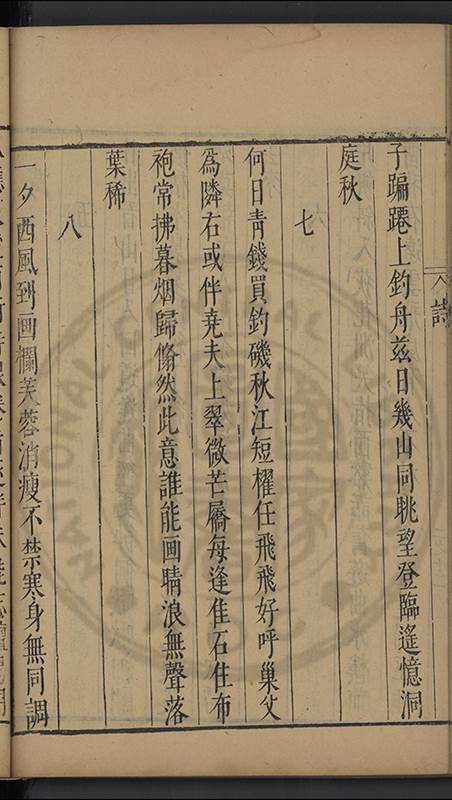 詩
子蹁蹮上釣舟茲日幾山同眺望登臨遙憶洞
庭秋
七
何日青錢買釣磯秋江短櫂任飛飛好呼巢父
為隣右或伴堯夫上翠微芒屩每逢佳石住布
袍常拂暮烟歸翛然此意誰能画晴浪無聲落
葉稀
八
一夕西風到画欄芙蓉消瘦不禁寒身無同調